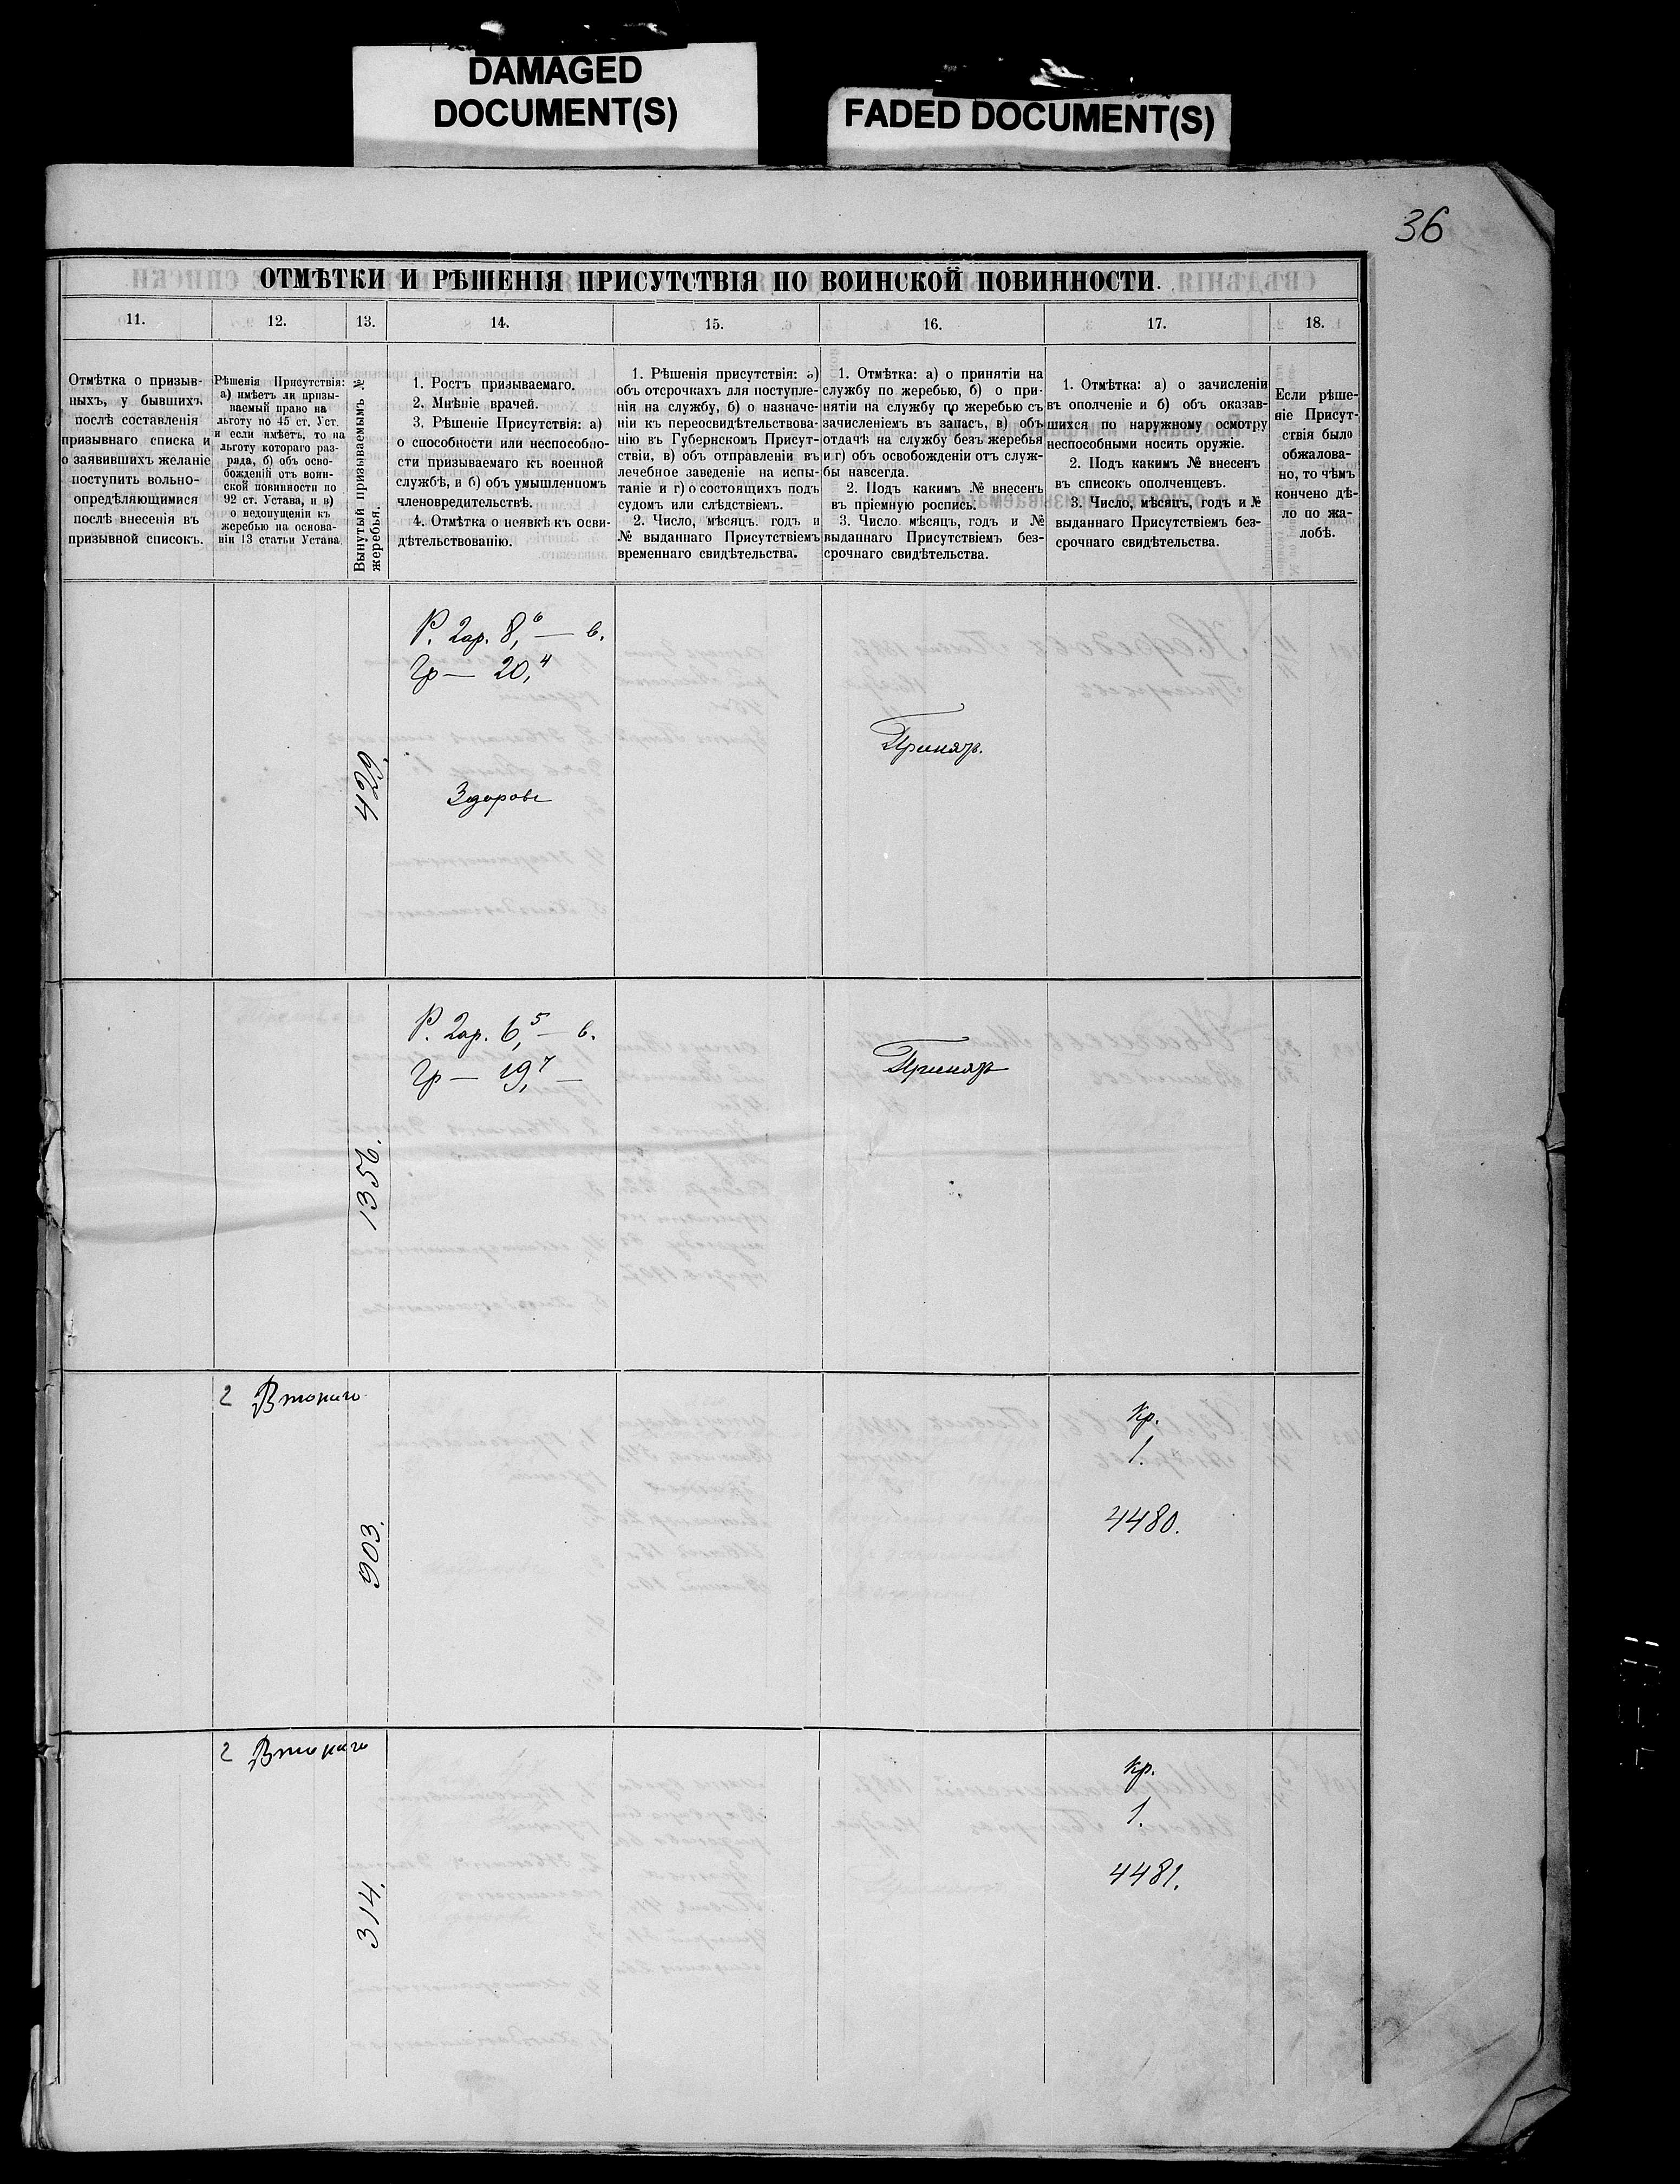 DAMAGED
DOCUMENT(S)
FADED DOCUMENT(S)
36
ОТМѢТКИ И РѢШЕНІЯ ПРИСУТСТВІЯ ПО ВОИНСКОЙ ПОВИННОСТИ.
11.
12.
13.
14.
15.
16.
17.
18.
Отмѣтка о призыв-
ныхъ, у бывшихъ,
послѣ составленія
призывнаго списка и
о заявившихъ желаніе
поступить вольно-
опредѣляющимися
послѣ внесенія въ
призывной списокъ.
Рѣшенія Присутствія:
а) имѣетъ ли призы-
ваемый право на
льготу по 45 ст. Уст.
и если имѣетъ, то на
льготу котораго раз-
ряда, б) объ осво-
божденіи отъ воин-
ской повинности по
92 ст. Устава, и в)
о недопущеніи къ
жеребью на основа-
ніи 13 статьи Устава
Вынутый призываемымъ №
жеребья.
1. Ростъ призываемаго.
2. Мнѣніе врачей.
3. Рѣшеніе Присутствія: а)
о способности или неспособно-
сти призываемаго къ военной
службѣ, и б) объ умышленномъ
членовредительствѣ.
4. Отмѣтка о неявкѣ къ осви-
дѣтельствованію.
1. Рѣшенія присутствія: а)
объ отсрочкахъ для поступле-
нія на службу, б) о назначе-
ніи къ переосвидѣтельствова-
нію въ Губернскомъ Присут-
ствіи, в) объ отправленіи въ
лечебное заведеніе на испы-
таніе и г) о состоящихъ подъ
судомъ или слѣдствіемъ.
2. Число, мѣсяцъ. годъ и
№ выданнаго Присутствіемъ
временнаго свидѣтельства.
1. Отмѣтка: а) о принятіи на
службу по жеребью, б) о при-
нятіи на службу по жеребью съ
зачисленіемъ въ запасъ, в) объ
отдачѣ на службу безъ жеребья
и г) объ освобожденіи отъ служ-
бы навсегда.
2. Подъ какимъ № внесенъ
въ пріемную роспись.
3. Число мѣсяцъ, годъ и №
выданнаго Присутствіемъ без-
срочнаго свидѣтельства.
1. Отмѣтка: а) о зачисленіи
въ ополченіе и б) объ оказав-
шихся по наружному осмотру
неспособными носить оружіе.
2. Подъ какимъ № внесенъ
въ списокъ ополченцевъ.
3. Число, мѣсяцъ, годъ и №
выданнаго Присутствіемъ без-
срочнаго свидѣтельства.
Если рѣше-
ніе Присут-
ствія было
обжалова-
но, то чѣмъ
кончено дѣ-
ло по жа-
лобѣ.
429.
Р. 2ар. 8,6 — в.
Гр — 20,4
Здоровъ
Принятъ.
1356.
Р. 2ар. 6,5 — в.
Гр — 19,7 —
Принятъ
2 Втораго
903.
Кр.
1.
4480.
2 Втораго
314.
Кр.
1.
4481.